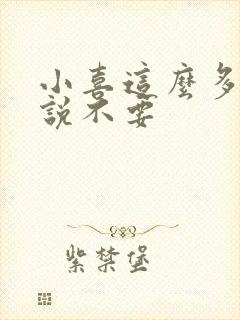 小喜這麼多
說不要
紫禁堡